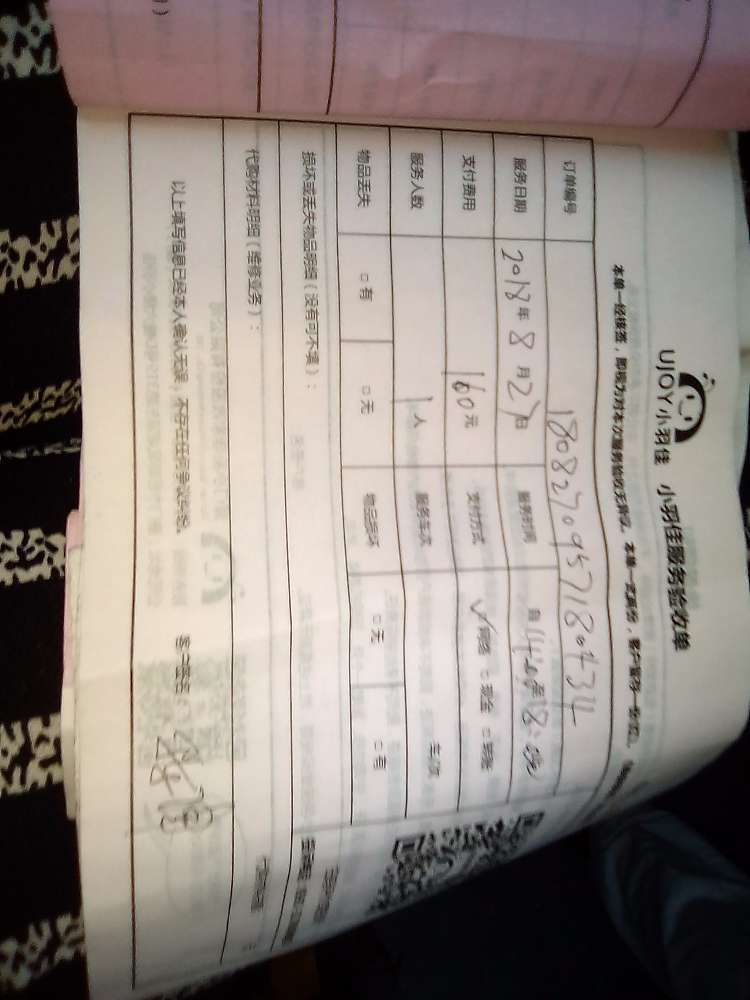 UJOY小羽佳 小羽佳服务验收单
本单一经接签，即视为对本次服务验收无异议。本单一式两份，客户留存一份。
订单编号 1808270957180434
服务日期 2018年8月27日 服务时间 自14:00至18:00
支付费用 160元 支付方式 ✓网络 □现金 □转账
服务人数 1人 服务车次 车次
物品丢失 □有 □无 物品损坏 □无 □有
损坏或丢失物品明细（没有可不填）：
代购材料明细（维修业务）：
以上填写信息已经本人确认无误，不存在任何争议纠纷。 客户签名：